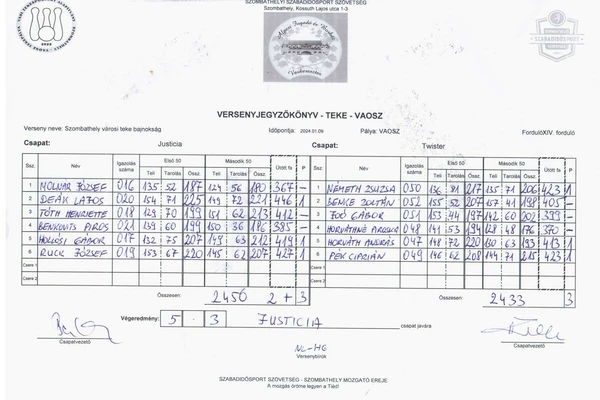 SZOMBATHELYI SZABADIDŐSPORT SZÖVETSÉG
Szombathely, Kossuth Lajos utca 1-3
SZABADIDŐSPORT
VERSENYJEGYZŐKÖNYV - TEKE - VAOSZ
Verseny neve: Szombathely városi teke bajnokság Időpontja: 2024.01.09 Pálya: VAOSZ Forduló XIV. forduló
Csapat: Justicia Csapat: Twister
Ssz. Név Igazolás száma Első 50 Második 50 Ütött fa P Ssz. Név Igazolás száma Első 50 Második 50 Ütött fa P
Teli Tarolás Össz. Teli Tarolás Össz. Teli Tarolás Össz. Teli Tarolás Össz.
1 MOLNÁR JÓZSEF 016 135 52 187 124 56 180 367 – 1 NÉMETH ZSUZSA 050 136 81 217 135 71 206 423 1
2 DEÁK LAJOS 020 154 71 225 149 72 221 446 1 2 BENKE ZOLTÁN 052 155 52 207 151 47 198 405 –
3 TÓTH HENRIETTE 018 129 70 199 151 62 213 412 – 3 JOÓ GÁBOR 051 153 44 197 142 60 202 399 –
4 BENKOVITS PIROS 021 139 60 199 150 36 186 385 – 4 HORVÁTHNÉ PIROSKA 048 141 53 194 128 48 176 370 –
5 HOLLÓSI GÁBOR 017 132 75 207 149 63 212 419 1 5 HORVÁTH ANDRÁS 047 148 72 220 130 63 193 413 1
6 RUCK JÓZSEF 019 153 67 220 145 62 207 427 1 6 PÉK CIPRIÁN 049 146 62 208 144 71 215 423 1
Csere 1 Csere 1
Csere 2 Csere 2
Összesen: 2456 2+3 Összesen: 2433 3
Végeredmény: 5 . 3 JUSTICIA csapat javára
Csapatvezető Csapatvezető
NL-HG
Versenybírók
SZABADIDŐSPORT SZÖVETSÉG - SZOMBATHELY MOZGATÓ EREJE
A mozgás öröme legyen a Tiéd!